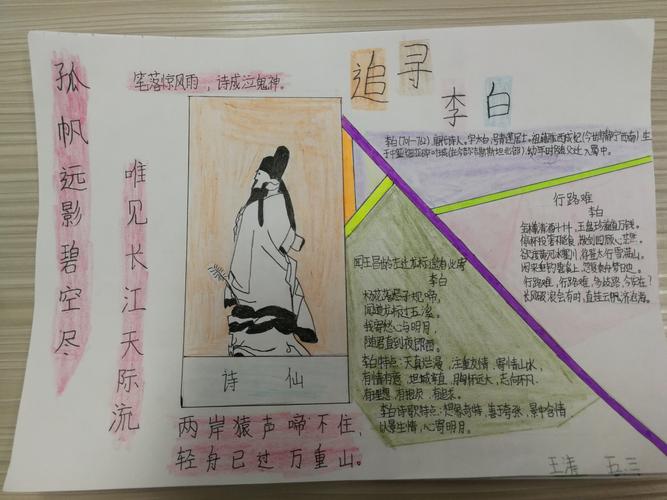 追寻
李白
孤帆远影碧空尽
唯见长江天际流
笔落惊风雨，诗成泣鬼神。
诗仙
两岸猿声啼不住，
轻舟已过万重山。
李白(701-762)唐代诗人。字太白，号青莲居士。祖籍陇西成纪(今甘肃静宁西南)生
幼年时随父迁入蜀中。
行路难
李白
金樽清酒斗十千，玉盘珍羞直万钱。
停杯投箸不能食，拔剑四顾心茫然。
欲渡黄河冰塞川，将登太行雪满山。
闲来垂钓碧溪上，忽复乘舟梦日边。
行路难，行路难，多歧路，今安在？
长风破浪会有时，直挂云帆济沧海。
闻王昌龄左迁龙标遥有此寄
李白
杨花落尽子规啼，
闻道龙标过五溪。
我寄愁心与明月，
随君直到夜郎西。
李白特点：天真烂漫，注重友情，寄情山水，
有情有意，坦诚率直，胸怀远大，志向不凡
有理想，有抱负，有追求。
李白诗歌特点：想象奇特，善于夸张，景中含情
以景生情，心寄明月。
五三